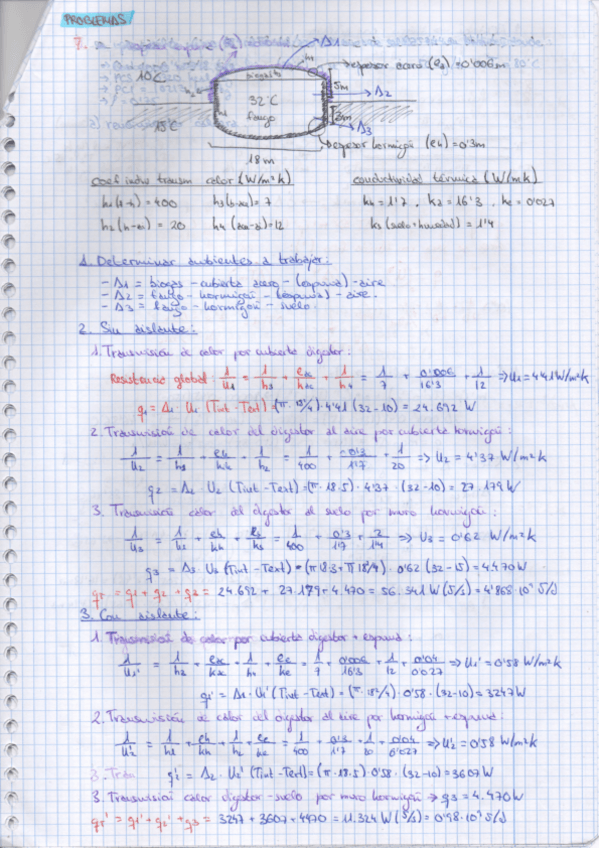 PROBLEMAS
7.
Δ1
espesor acero (ea) = 0'006m
10°C
biogás
5m
Δ2
32°C
fango
3m
15°C
Δ3
espesor hormigón (eh) = 0'3m
18m
coef indiv transm calor (W/m²k)
conductividad térmica (W/mk)
h1 (f-h) = 400 h3 (b-ac) = 7
kh = 1'7, ka = 16'3, ke = 0'027
h2 (h-ai) = 20 h4 (ac-ai) = 12
ks (suelo húmedo) = 1'4
1. Determinar ambientes a trabajar:
- Δ1 = biogás - cubierta acero - (espuma) - aire
- Δ2 = fango - hormigón - (espuma) - aire.
- Δ3 = fango - hormigón - suelo.
2. Sin aislante:
1. Transmisión de calor por cubierta digestor:
Resistencia global: 1/U1 = 1/h3 + eac/kac + 1/h4 = 1/7 + 0'006/16'3 + 1/12 => U1 = 4'41 W/m²k
q1 = Δ1 · U1 (Tint - Text) = (π · 18²/4) · 4'41 (32 - 10) = 24.692 W
2. Transmisión de calor del digestor al aire por cubierta hormigón:
1/U2 = 1/h1 + eh/kh + 1/h2 = 1/400 + 0'3/1'7 + 1/20 => U2 = 4'37 W/m²k
q2 = Δ2 · U2 (Tint - Text) = (π · 18 · 5) · 4'37 · (32 - 10) = 27.179 W
3. Transmisión calor del digestor al suelo por muro hormigón:
1/U3 = 1/h1 + eh/kh + es/ks = 1/400 + 0'3/1'7 + 2/1'4 => U3 = 0'62 W/m²k
q3 = Δ3 · U3 (Tint - Text) = (π 18·3 + π 18²/4) · 0'62 (32 - 15) = 4.470 W
qT = q1 + q2 + q3 = 24.692 + 27.179 + 4.470 = 56.341 W (J/s) = 4'868 · 10⁹ J/d
3. Con aislante:
1. Transmisión de calor por cubierta digestor + espuma:
1/U1' = 1/h3 + eac/kac + 1/h4 + ee/ke = 1/7 + 0'006/16'3 + 1/12 + 0'04/0'027 => U1' = 0'58 W/m²k
q1' = Δ1 · U1' (Tint - Text) = (π · 18²/4) · 0'58 · (32 - 10) = 3247 W
2. Transmisión de calor del digestor al aire por hormigón + espuma:
1/U2' = 1/h1 + eh/kh + 1/h2 + ee/ke = 1/400 + 0'3/1'7 + 1/20 + 0'04/0'027 => U2' = 0'58 W/m²k
3. Tran q2' = Δ2 · U2' (Tint - Text) = (π · 18 · 5) · 0'58 · (32 - 10) = 3607 W
3. Transmisión calor digestor - suelo por muro hormigón → q3 = 4.470 W
qT' = q1' + q2' + q3 = 3247 + 3607 + 4470 = 11.324 W (J/s) = 0'98 · 10⁹ J/d